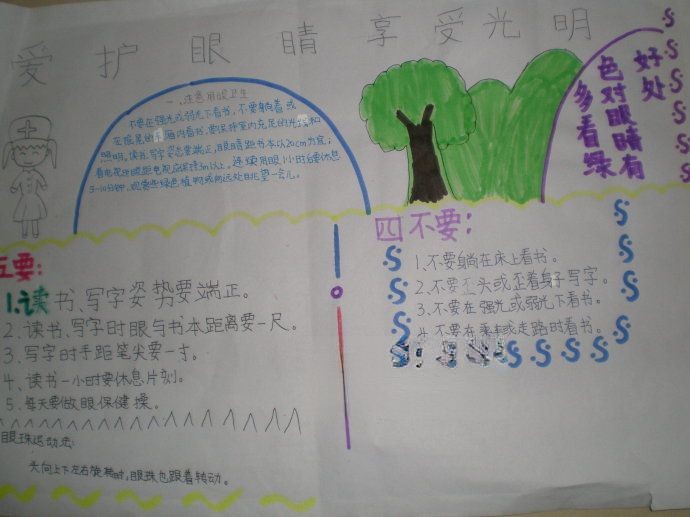 爱护眼睛 享受光明
一、注意用眼卫生
不要在强光或弱光下看书,不要躺着或
在摇晃的车厢内看书,要保持室内充足的光线和
照明。读书、写字姿态要端正,眼睛距书本以20cm为宜;
看电视时眼距电视应保持3m以上。连续用眼1小时应要休息
5-10分钟,观赏些绿色植物或向远处眺望一会儿。
多看绿
色对眼睛有
好处
五要:
1、读书、写字姿势要端正。
2、读书、写字时眼与书本距离要一尺。
3、写字时手距笔尖要一寸。
4、读书一小时要休息片刻。
5、每天要做眼保健操。
眼珠运动法:
头向上下左右旋转时,眼珠也跟着转动。
四不要:
1、不要躺在床上看书。
2、不要歪头或歪着身子写字。
3、不要在强光或弱光下看书。
4、不要在乘车或走路时看书。